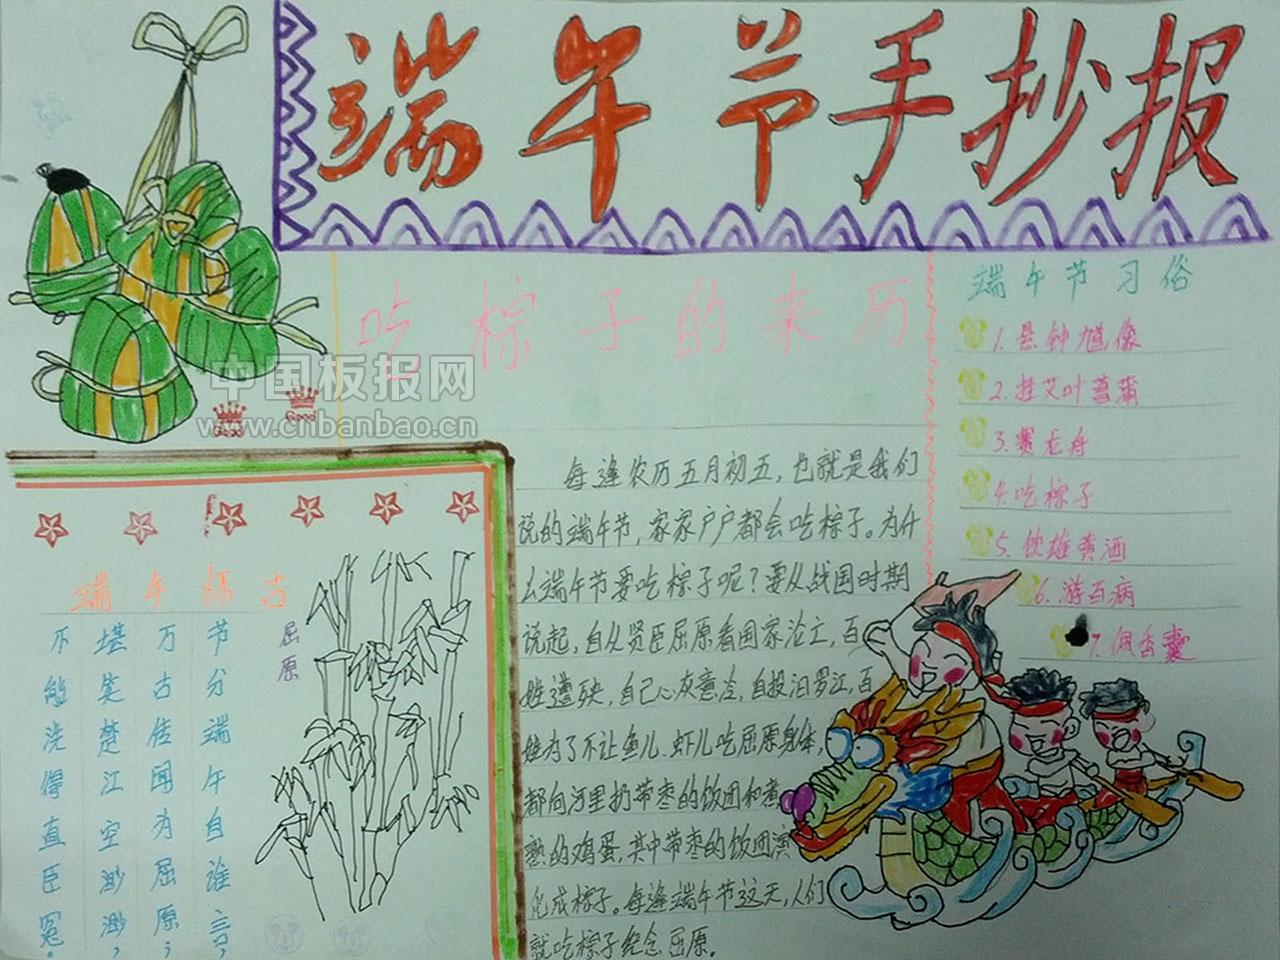 端午节手抄报
中国板报网
www.cnbanbao.cn
Good
Good
吃棕子的来历
每逢农历五月初五，也就是我们
说的端午节，家家户户都会吃棕子。为什
么端午节要吃棕子呢？要从战国时期
说起，自从贤臣屈原看国家沦亡，百
姓遭殃，自己心灰意冷，自投汨罗江，百
姓为了不让鱼儿、虾儿吃屈原身体，
都向河里扔带枣的饭团和煮
熟的鸡蛋，其中带枣的饭团演
化成棕子。每逢端午节这天，人们
就吃棕子纪念屈原。
端午节习俗
1.悬钟馗像
2.挂艾叶菖蒲
3.赛龙舟
4.吃棕子
5.饮雄黄酒
6.游百病
7.佩香囊
端午怀古
屈原
节分端午自谁言，
万古传闻为屈原；
堪笑楚江空渺渺，
不能洗得直臣冤。